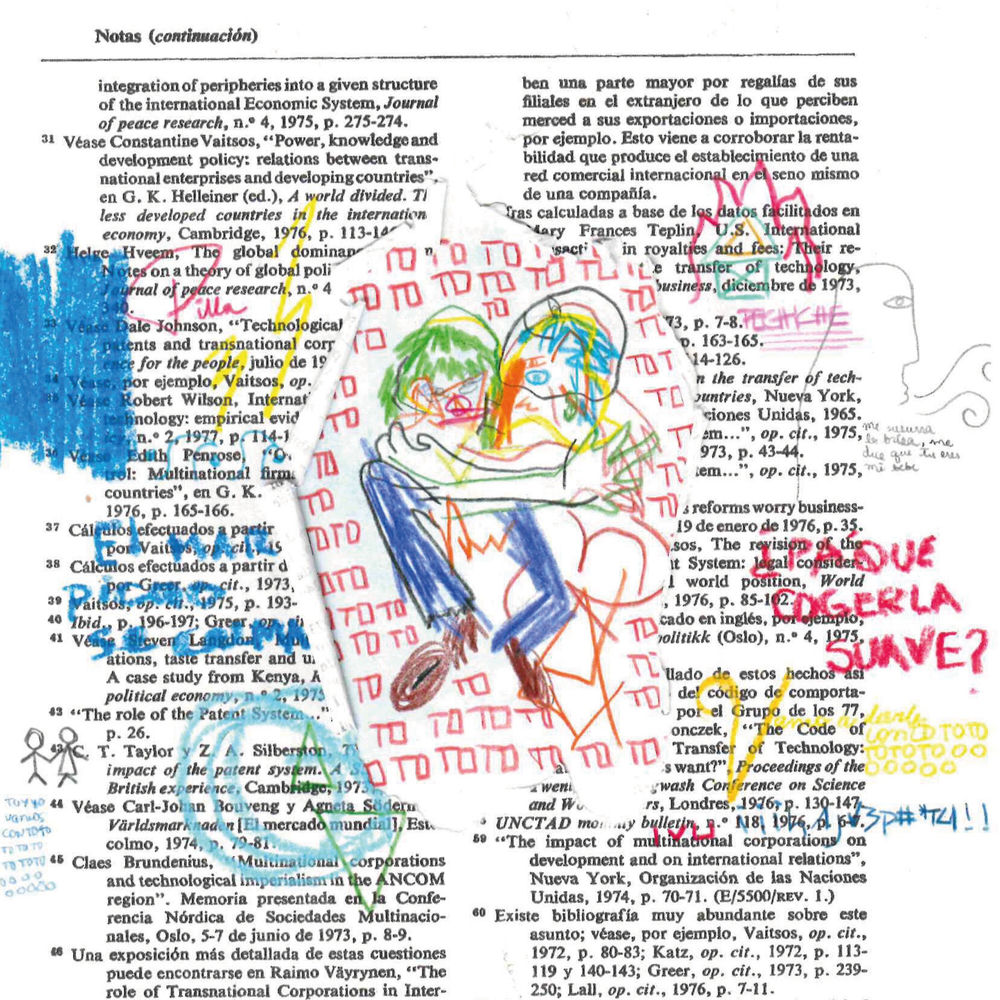 Notas (continuación)
integration of peripheries into a given structure
of the international Economic System, Journal
of peace research, n.º 4, 1975, p. 275-274.
31 Véase Constantine Vaitsos, “Power, knowledge and
development policy: relations between trans-
national enterprises and developing countries”,
en G. K. Helleiner (ed.), A world divided.
less developed countries in the internation
economy, Cambridge, 1976, p. 113-14
32 Helge Hveem, The global dominan
Notes on a theory of global poli
Journal of peace research, n.º 4
340.
33 Véase Dale Johnson, “Technological
patents and transnational corp
ence for the people, julio de 19
34 Véase, por ejemplo, Vaitsos, op.
35 Véase Robert Wilson, Internati
technology: empirical evid
n.º 2, 1977, p. 114-1
36 Véase Edith Penrose,
trol: Multinational firm
countries”, en G. K.
1976, p. 165-166.
37 Cálculos efectuados a partir
por Vaitsos, op. cit., 19
38 Cálculos efectuados a partir d
por Greer, op. cit., 1973,
39 Vaitsos, op. cit., 1975, p. 193-
40 Ibid., p. 196-197; Greer, op.
41 Véase Steven Langdon, Mul
ations, taste transfer and
A case study from Kenya,
political economy, n.º 2, 1975
43 “The role of the Patent System...”
p. 26.
C. T. Taylor y Z. A. Silberston,
impact of the patent system. A
British experience, Cambridge, 1973
44 Véase Carl-Johan Bouveng y Agneta Södern
Världsmarknaden [El mercado mundial], Est
colmo, 1974, p. 79-81.
45 Claes Brundenius, “Multinational corporations
and technological imperialism in the ANCOM
region”. Memoria presentada en la Confe-
rencia Nórdica de Sociedades Multinacio-
nales, Oslo, 5-7 de junio de 1973, p. 8-9.
46 Una exposición más detallada de estas cuestiones
puede encontrarse en Raimo Väyrynen, “The
role of Transnational Corporations in Inter-
ben una parte mayor por regalías de sus
filiales en el extranjero de lo que perciben
merced a sus exportaciones o importaciones,
por ejemplo. Esto viene a corroborar la renta-
bilidad que produce el establecimiento de una
red comercial internacional en el seno mismo
de una compañía.
fras calculadas a base de los datos facilitados en
Mary Frances Teplin, U.S. International
in royalties and fees: Their re-
transfer of technology,
business, diciembre de 1973,
73, p. 7-8.
p. 163-165.
14-126.
n the transfer of tech-
ountries, Nueva York,
ciones Unidas, 1965.
em...”, op. cit., 1975,
973, p. 43-44.
tem...”, op. cit., 1975,
reforms worry business-
19 de enero de 1976, p. 35.
sos, The revision of the
t System: legal consider-
l world position, World
, 1976, p. 85-102.
cado en inglés, por ejemplo,
politikk (Oslo), n.º 4, 1975,
llado de estos hechos así
del código de comporta-
por el Grupo de los 77,
onczek, “The Code of
Transfer of Technology:
s want?”, Proceedings of the
wash Conference on Science
and Wo rs, Londres, 1976, p. 130-147.
UNCTAD monthly bulletin, n.º 118, 1976, p. 6-7.
59 “The impact of multinational corporations on
development and on international relations”,
Nueva York, Organización de las Naciones
Unidas, 1974, p. 70-71. (E/5500/REV. 1.)
60 Existe bibliografía muy abundante sobre este
asunto; véase, por ejemplo, Vaitsos, op. cit.,
1972, p. 80-83; Katz, op. cit., 1972, p. 113-
119 y 140-143; Greer, op. cit., 1973, p. 239-
250; Lall, op. cit., 1976, p. 7-11.
Pilla
me susurra
la brisa, me
dice que tu eres
mi bebé
¿PA QUE
COGERLA
SUAVE?
TU Y YO
vamos
CON TOTO
TO TO TO
TO TOTO
TOTO
TOTOTO